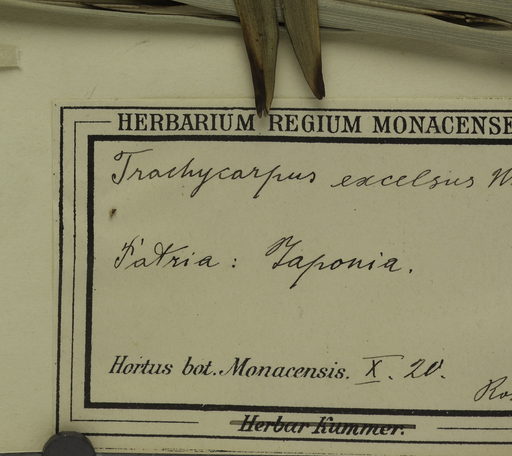 HERBARIUM REGIUM MONACENSE
Trachycarpus excelsus W
Patria : Japonia.
Hortus bot. Monacensis. X. 20.
Herbar Kummer.